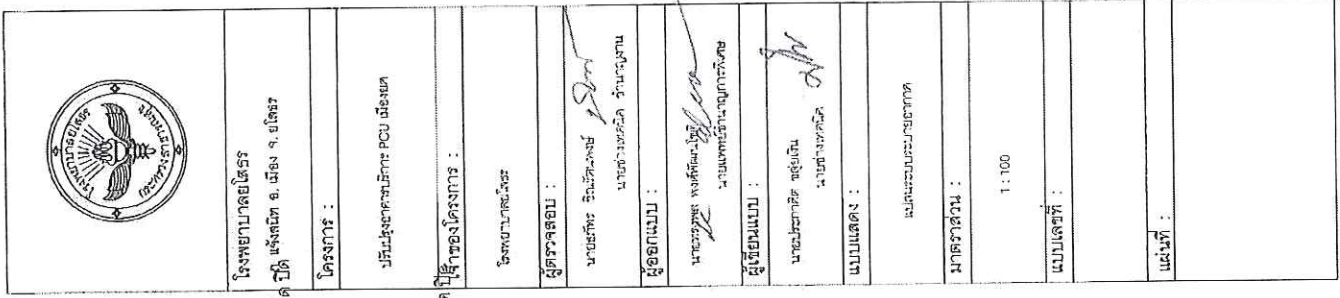 โรงพยาบาลยโสธร
โรงพยาบาลยโสธร
แจ้งสนิท อ. เมือง จ. ยโสธร
โครงการ :
ปรับปรุงอาคารบริการ PCU เมืองยศ
เจ้าของโครงการ :
โรงพยาบาลยโสธร
ผู้ตรวจสอบ :
นายช่างเทคนิค ชำนาญงาน
ผู้ออกแบบ :
นายแพทย์ชำนาญการพิเศษ
ผู้เขียนแบบ :
นายประกาศิต พลุยเงิน
นายช่างเทคนิค
แบบแสดง :
แปลนระบบระบายอากาศ
มาตราส่วน :
1:100
แบบเลขที่ :
แผ่นที่ :